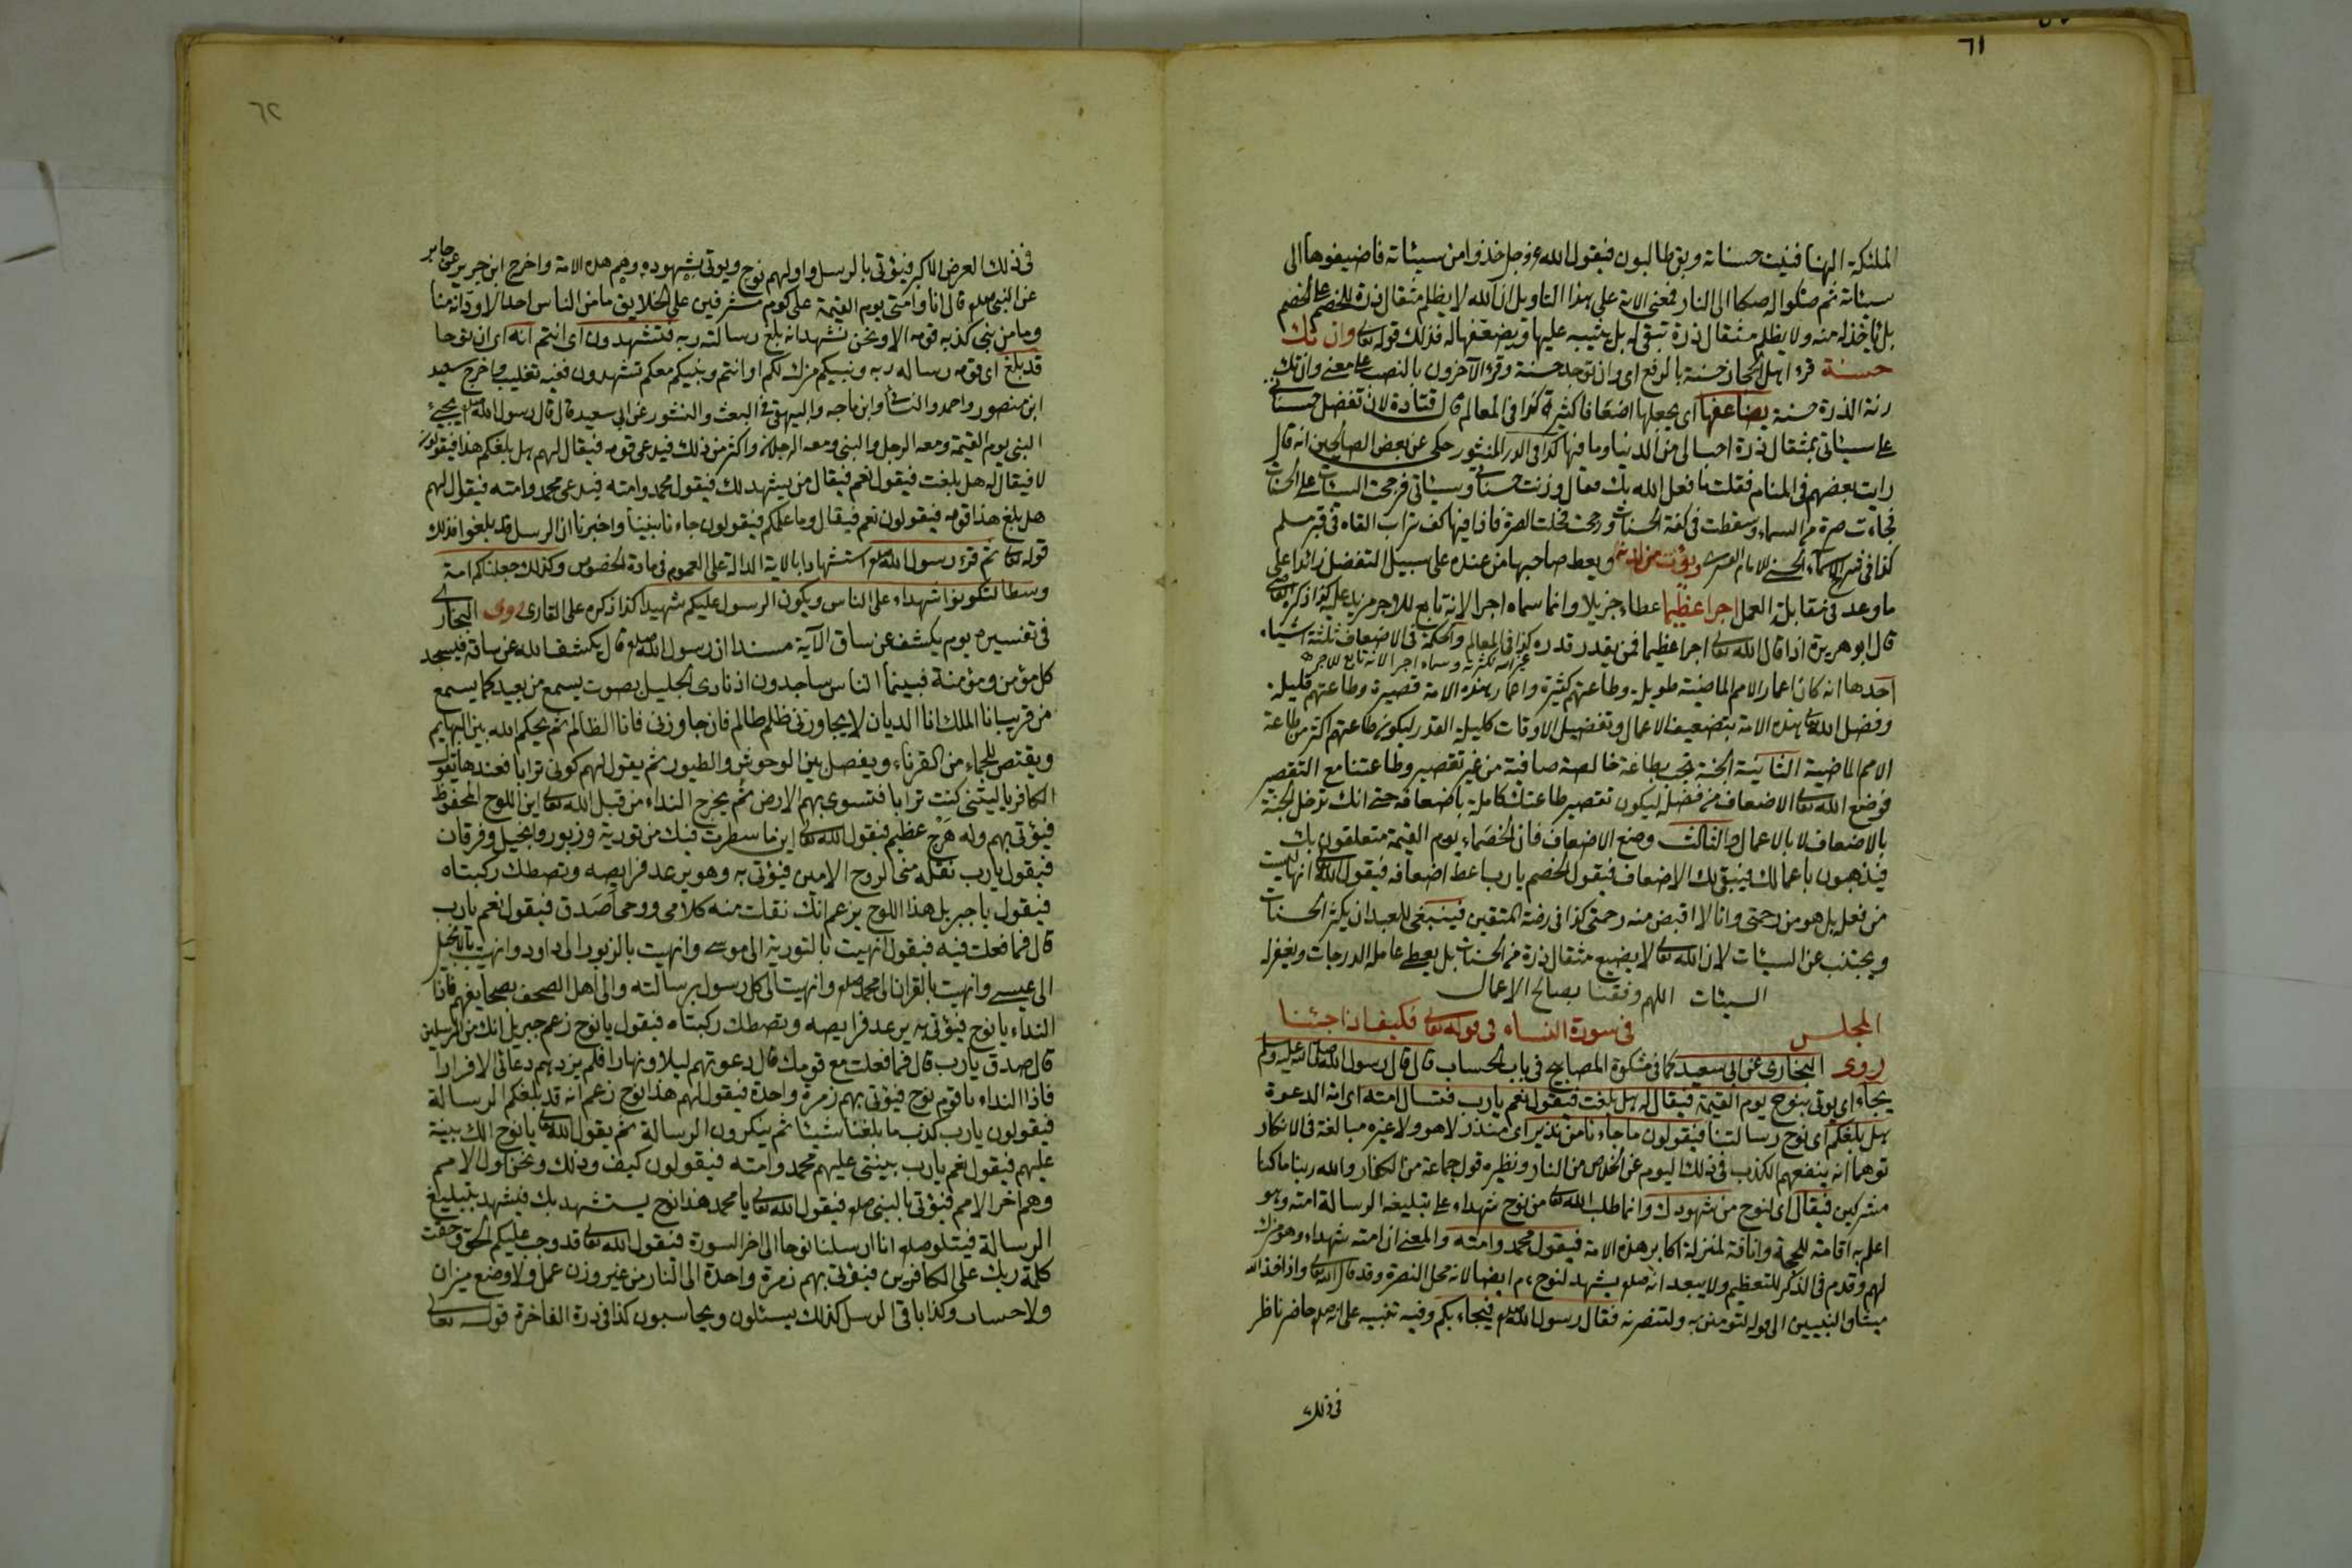 ٦١
الملئكة الهنا فنيت حسناته وبقى طالبون فيقول الله عز وجل خذوا من سيئاته فاضيفوها الى
سيئاته ثم صكوا له صكا الى النار فمعنى الاية على هذا التاويل ان الله لا يظلم مثقال ذرة للخصم على الخصم
بل ياخذ له منه ولا يظلم مثقال ذرة تبقى له بل يثيبه عليها ويضعفها له فذلك قوله تعالى وان تك
حسنة قرء اهل الحجاز حسنة بالرفع اى وان توجد حسنة وقرء الآخرون بالنصب على معنى وان تك
زنة الذرة حسنة يضاعفها اى يجعلها اضعافا كثيرة كذا فى المعالم قال قتادة لان تفضل حسناتى
على سيئاتى بمثقال ذرة احب الى من الدنيا وما فيها كذا فى الدر المنثور حكى عن بعض الصالحين انه قال
رايت بعضهم فى المنام فقلت ما فعل الله بك فقال وزنت حسناتى وسيئاتى فرجحت السيئات على الحسنات
فجاءت صرة من السماء وسقطت فى كفة الحسنات ورجحت فحلت الصرة فاذا فيها كف تراب القاه فى قبر مسلم
كذا فى شرح الاسماء الحسنى للامام القشيرى ويؤت من لدنه ويعط صاحبها من عنده على سبيل التفضل زائدا على
ما وعد فى مقابلة العمل اجرا عظيما عطاء جزيلا وانما سماه اجرا لانه تابع للاجر مزيد عليه كذا ذكره القاضى
قال ابو هريرة اذا قال الله تعالى اجرا عظيما فمن يقدر قدره كذا فى المعالم والحكمة فى الاضعاف ثلثة اشياء
وسماه اجرا لانه تابع للاجر
احدها انه كان اعمار الامم الماضية طويلة وطاعتهم كثيرة واعمار هذه الامة قصيرة وطاعتهم قليلة
وفضل الله تعالى هذه الامة بتضعيف الاعمال وتفضيل الاوقات كليلة القدر ليكون طاعتهم اكثر من طاعة
الامم الماضية الثانية الجنة تجب بطاعة خالصة صافية من غير تقصير وطاعتنا مع التقصير
فوضع الله تعالى الاضعاف من فضله ليكون تقصير طاعتك كاملة باضعافه حتى انك تدخل الجنة
بالاضعاف لا بالاعمال والثالث وضع الاضعاف فان الخصماء يوم القيمة متعلقون بك
فيذهبون باعمالك فيبقى لك الاضعاف فيقول الخصم يا رب اعط اضعافه فيقول الله تعالى انها ليست
من فعله بل هو من رحمتى وانا لا اقبض منه رحمتى كذا فى روضة المتقين فينبغى للعبد ان يكثر الحسنات
ويجتنب عن السيئات لان الله تعالى لا يضيع مثقال ذرة من الحسنات بل يعطى عامله الدرجات ويغفر له
السيئات اللهم وفقنا بصالح الاعمال
المجلس فى سورة النساء فى قوله تعالى فكيف اذا جئنا
روى البخارى عن ابى سعيد كما فى مشكوة المصابيح فى باب الحساب قال قال رسول الله صلى الله عليه وسلم
يجاء اى يوتى بنوح يوم القيمة فيقال له هل بلغت فيقول نعم يا رب فتسال امته اى امة الدعوة
هل بلغكم اى نوح رسالتنا فيقولون ما جاءنا من نذير اى منذر لا هو ولا غيره مبالغة فى الانكار
توهما انه ينفعهم الكذب فى ذلك اليوم عن الخلاص من النار ونظيره قول جماعة من الكفار والله ربنا ما كنا
مشركين فيقال اى لنوح من شهودك وانما طلب الله تعالى من نوح شهداء على تبليغه الرسالة امته وهو
اعلم به اقامة للحجة وانافة لمنزلة اكابر هذه الامة فيقول محمد وامته والمعنى ان امته شهداء وهو مزك
لهم وقدم فى الذكر للتعظيم ولا يبعد انه صلعم يشهد لنوح ايضا لانه محل النصرة وقد قال الله تعالى واذ اخذ الله
ميثاق النبيين الى قوله لتومنن به ولتنصرنه فقال رسول الله صلعم فيجاء بكم وفيه تنبيه على انه صلعم حاضر ناظر
فى ذلك
٦٢
فى ذلك العرض الاكبر فيؤتى بالرسل واولهم نوح ويوتى بشهوده وهم هذه الامة واخرج ابن جرير عن جابر
عن النبى صلعم قال انا وامتى يوم القيمة على كوم مشرفين على الخلايق ما من الناس احد الا ود انه منا
وما من نبى كذبه قومه الا ونحن نشهد انه بلغ رسالة ربه فتشهدون اى انتم انه اى ان نوحا
قد بلغ اى قومه رسالة ربه ونبيكم مزك لكم او انتم ونبيكم معكم تشهدون ففيه تغليب واخرج سعيد
ابن منصور واحمد والنسائى وابن ماجه والبيهقى فى البعث والنشور عن ابى سعيد قال قال رسول الله صلعم يجيئ
النبى يوم القيمة ومعه الرجل والنبى ومعه الرجلان واكثر من ذلك فيدعى قومه فيقال لهم هل بلغكم هذا فيقولون
لا فيقال له هل بلغت فيقول نعم فيقال من يشهد لك فيقول محمد وامته فيدعى محمد وامته فيقال لهم
هل بلغ هذا قومه فيقولون نعم فيقال وما علمكم فيقولون جاءنا نبينا واخبرنا ان الرسل قد بلغوا فذلك
قوله تعالى ثم قرء رسول الله صلعم استشهادا بالاية الدالة على العموم فى مادة الخصوص وكذلك جعلناكم امة
وسطا لتكونوا شهداء على الناس ويكون الرسول عليكم شهيدا كذا ذكره على القارى روى البخارى
فى تفسيره يوم يكشف عن ساق الآية مسندا ان رسول الله صلعم قال يكشف الله عن ساقه فيسجد
كل مؤمن ومؤمنة فبينما الناس ساجدون اذ نادى الجليل بصوت يسمع من بعيد كما يسمع
من قريب انا الملك انا الديان لا يجاوزنى ظلم ظالم فان جاوزنى فانا الظالم ثم يحكم الله بين البهايم
ويقتص للجماء من القرناء ويفصل بين الوحوش والطيور ثم يقول لهم كونى ترابا فعندها يقول
الكافر يا ليتنى كنت ترابا فتسوى بهم الارض ثم يخرج النداء من قبل الله تعالى اين اللوح المحفوظ
فيؤتى بهم وله هرج عظيم فيقول الله تعالى اين ما سطرت فيك من تورية وزبور وانجيل وفرقان
فيقول يا رب نقله منى الروح الامين فيؤتى به وهو يرعد فرايصه وتصطك ركبتاه
فيقول يا جبريل هذا اللوح يزعم انك نقلت منه كلامى ووحى اصدق فيقول نعم يا رب
قال فما فعلت فيه فيقول انهيت بالتورية الى موسى وانهيت بالزبور الى داود وانهيت بالانجيل
الى عيسى وانهيت بالقران الى محمد صلعم وانهيت الى كل رسول برسالته والى اهل الصحف بصحايفهم فاذا
النداء يا نوح فيؤتى به يرعد فرايصه وتصطك ركبتاه فيقول يا نوح زعم جبريل انك من المرسلين
قال صدق يا رب قال فما فعلت مع قومك قال دعوتهم ليلا ونهارا فلم يزدهم دعائى الا فرارا
فاذا النداء يا قوم نوح فيؤتى بهم زمرة واحدة فيقول لهم هذا نوح زعم انه قد بلغكم الرسالة
فيقولون يا رب كذب ما بلغنا شيئا ثم ينكرون الرسالة ثم يقول الله تعالى يا نوح الك بينة
عليهم فيقول نعم يا رب بينتى عليهم محمد وامته فيقولون كيف وذلك ونحن اول الامم
وهم اخر الامم فيؤتى بالنبى صلعم فيقول الله تعالى يا محمد هذا نوح يستشهد بك فيشهد بتبليغ
الرسالة فيتلو صلعم انا ارسلنا نوحا الى اخر السورة فيقول الله تعالى قد وجب عليكم الحق وحقت
كلمة ربك على الكافرين فيؤتى بهم زمرة واحدة الى النار من غير وزن عمل ولا وضع ميزان
ولا حساب وكذا باقى الرسل كذلك يسئلون ويحاسبون كذا فى درة الفاخرة قوله تعالى